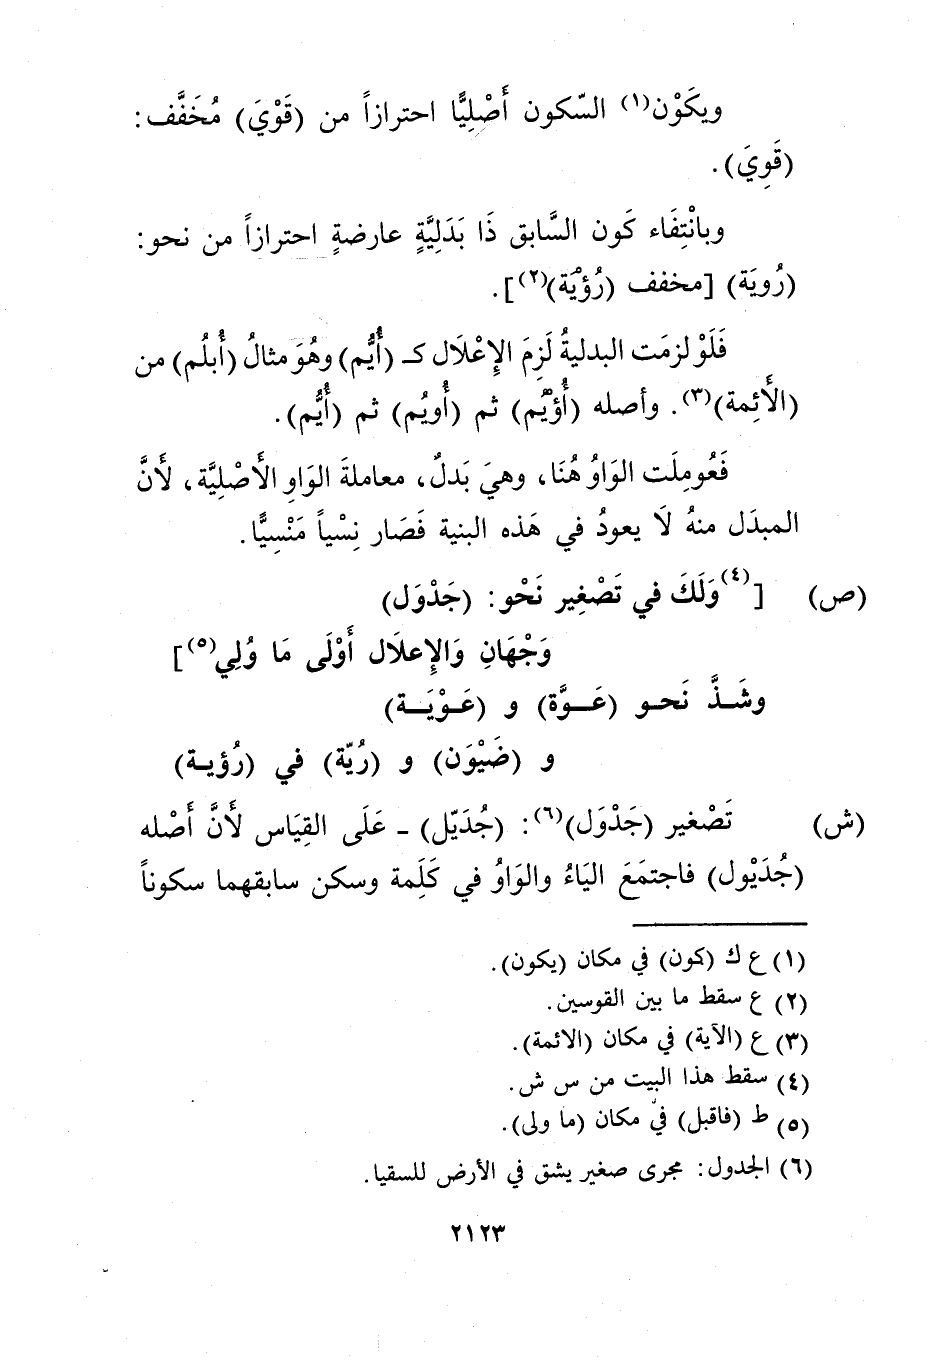 ويكَوْن(١) السّكون أَصْلِيًّا احترازاً من (قَوْيَ) مُخَفَّف:
(قَوِيَ).
وبانْتِفَاء كَون السَّابق ذَا بَدَلِيَّةٍ عارضةٍ احترازاً من نحو:
(رُويَة) [مخفف (رُؤيَة)(٢)].
فَلَوْ لزمَت البدليةُ لَزِمَ الإِعْلَال كـ (أُيُّم) وهُوَ مثالُ (أُبلُم) من
(الأَئِمة)(٣). وأصله (أُؤيُم) ثم (أُويُم) ثم (أُيُّم).
فَعُومِلَت الوَاوُ هُنَا، وهيَ بَدلٌ، معاملةَ الوَاوِ الأَصْلِيَّة، لأَنَّ
المبدَل منهُ لَا يعودُ في هَذه البنية فَصَار نِسْياً مَنْسِيًّا.
(ص) [(٤)وَلَكَ في تَصْغِير نَحْو: (جَدْوَل)
وَجْهَانِ وَالإِعلَال أَوْلَى مَا وُلِي(٥)]
وشَـذَّ نَحـو (عَـوَّة) و (عَـوْيَـة)
و (ضَيْوَن) و (رُيّة) في (رُؤيـة)
(ش) تَصْغير (جَدْوَل)(٦): (جُدَيّل) ـ عَلَى القِيَاس لأَنَّ أَصْله
(جُدَيْول) فاجتمَعَ اليَاءُ والوَاوُ في كَلِمة وسكن سابقهما سكوناً
(١) ع ك (كون) في مكان (يكون).
(٢) ع سقط ما بين القوسين.
(٣) ع (الآية) في مكان (الائمة).
(٤) سقط هذا البيت من س ش.
(٥) ط (فاقبل) في مكان (ما ولى).
(٦) الجدول: مجرى صغير يشق في الأرض للسقيا.
٢١٢٣